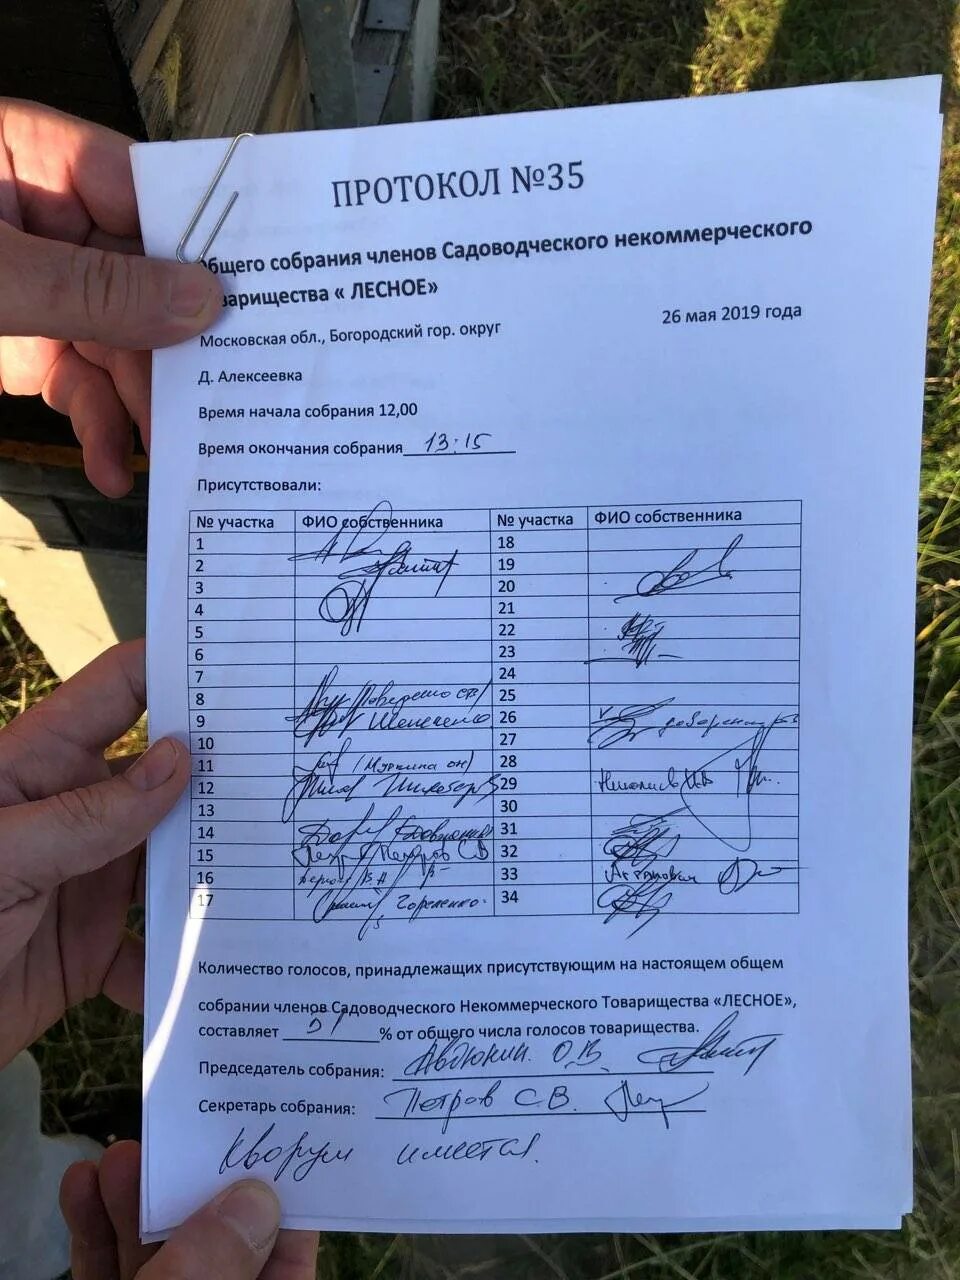 ПРОТОКОЛ №35
бщего собрания членов Садоводческого некоммерческого
варищества « ЛЕСНОЕ»
Московская обл., Богородский гор. округ 26 мая 2019 года
Д. Алексеевка
Время начала собрания 12,00
Время окончания собрания 13:15
Присутствовали:
№ участка ФИО собственника № участка ФИО собственника
1 18
2 19
3 20
4 21
5 22
6 23
7 24
8 25
9 26
10 27
11 (Муркина он) 28
12 29
13 30
14 31
15 Петров С В 32
16 33
17 Гореленко 34
Количество голосов, принадлежащих присутствующим на настоящем общем
собрании членов Садоводческого Некоммерческого Товарищества «ЛЕСНОЕ»,
составляет 51 % от общего числа голосов товарищества.
Председатель собрания: Авдюнин О.В.
Секретарь собрания: Петров С.В.
Кворум имеется.